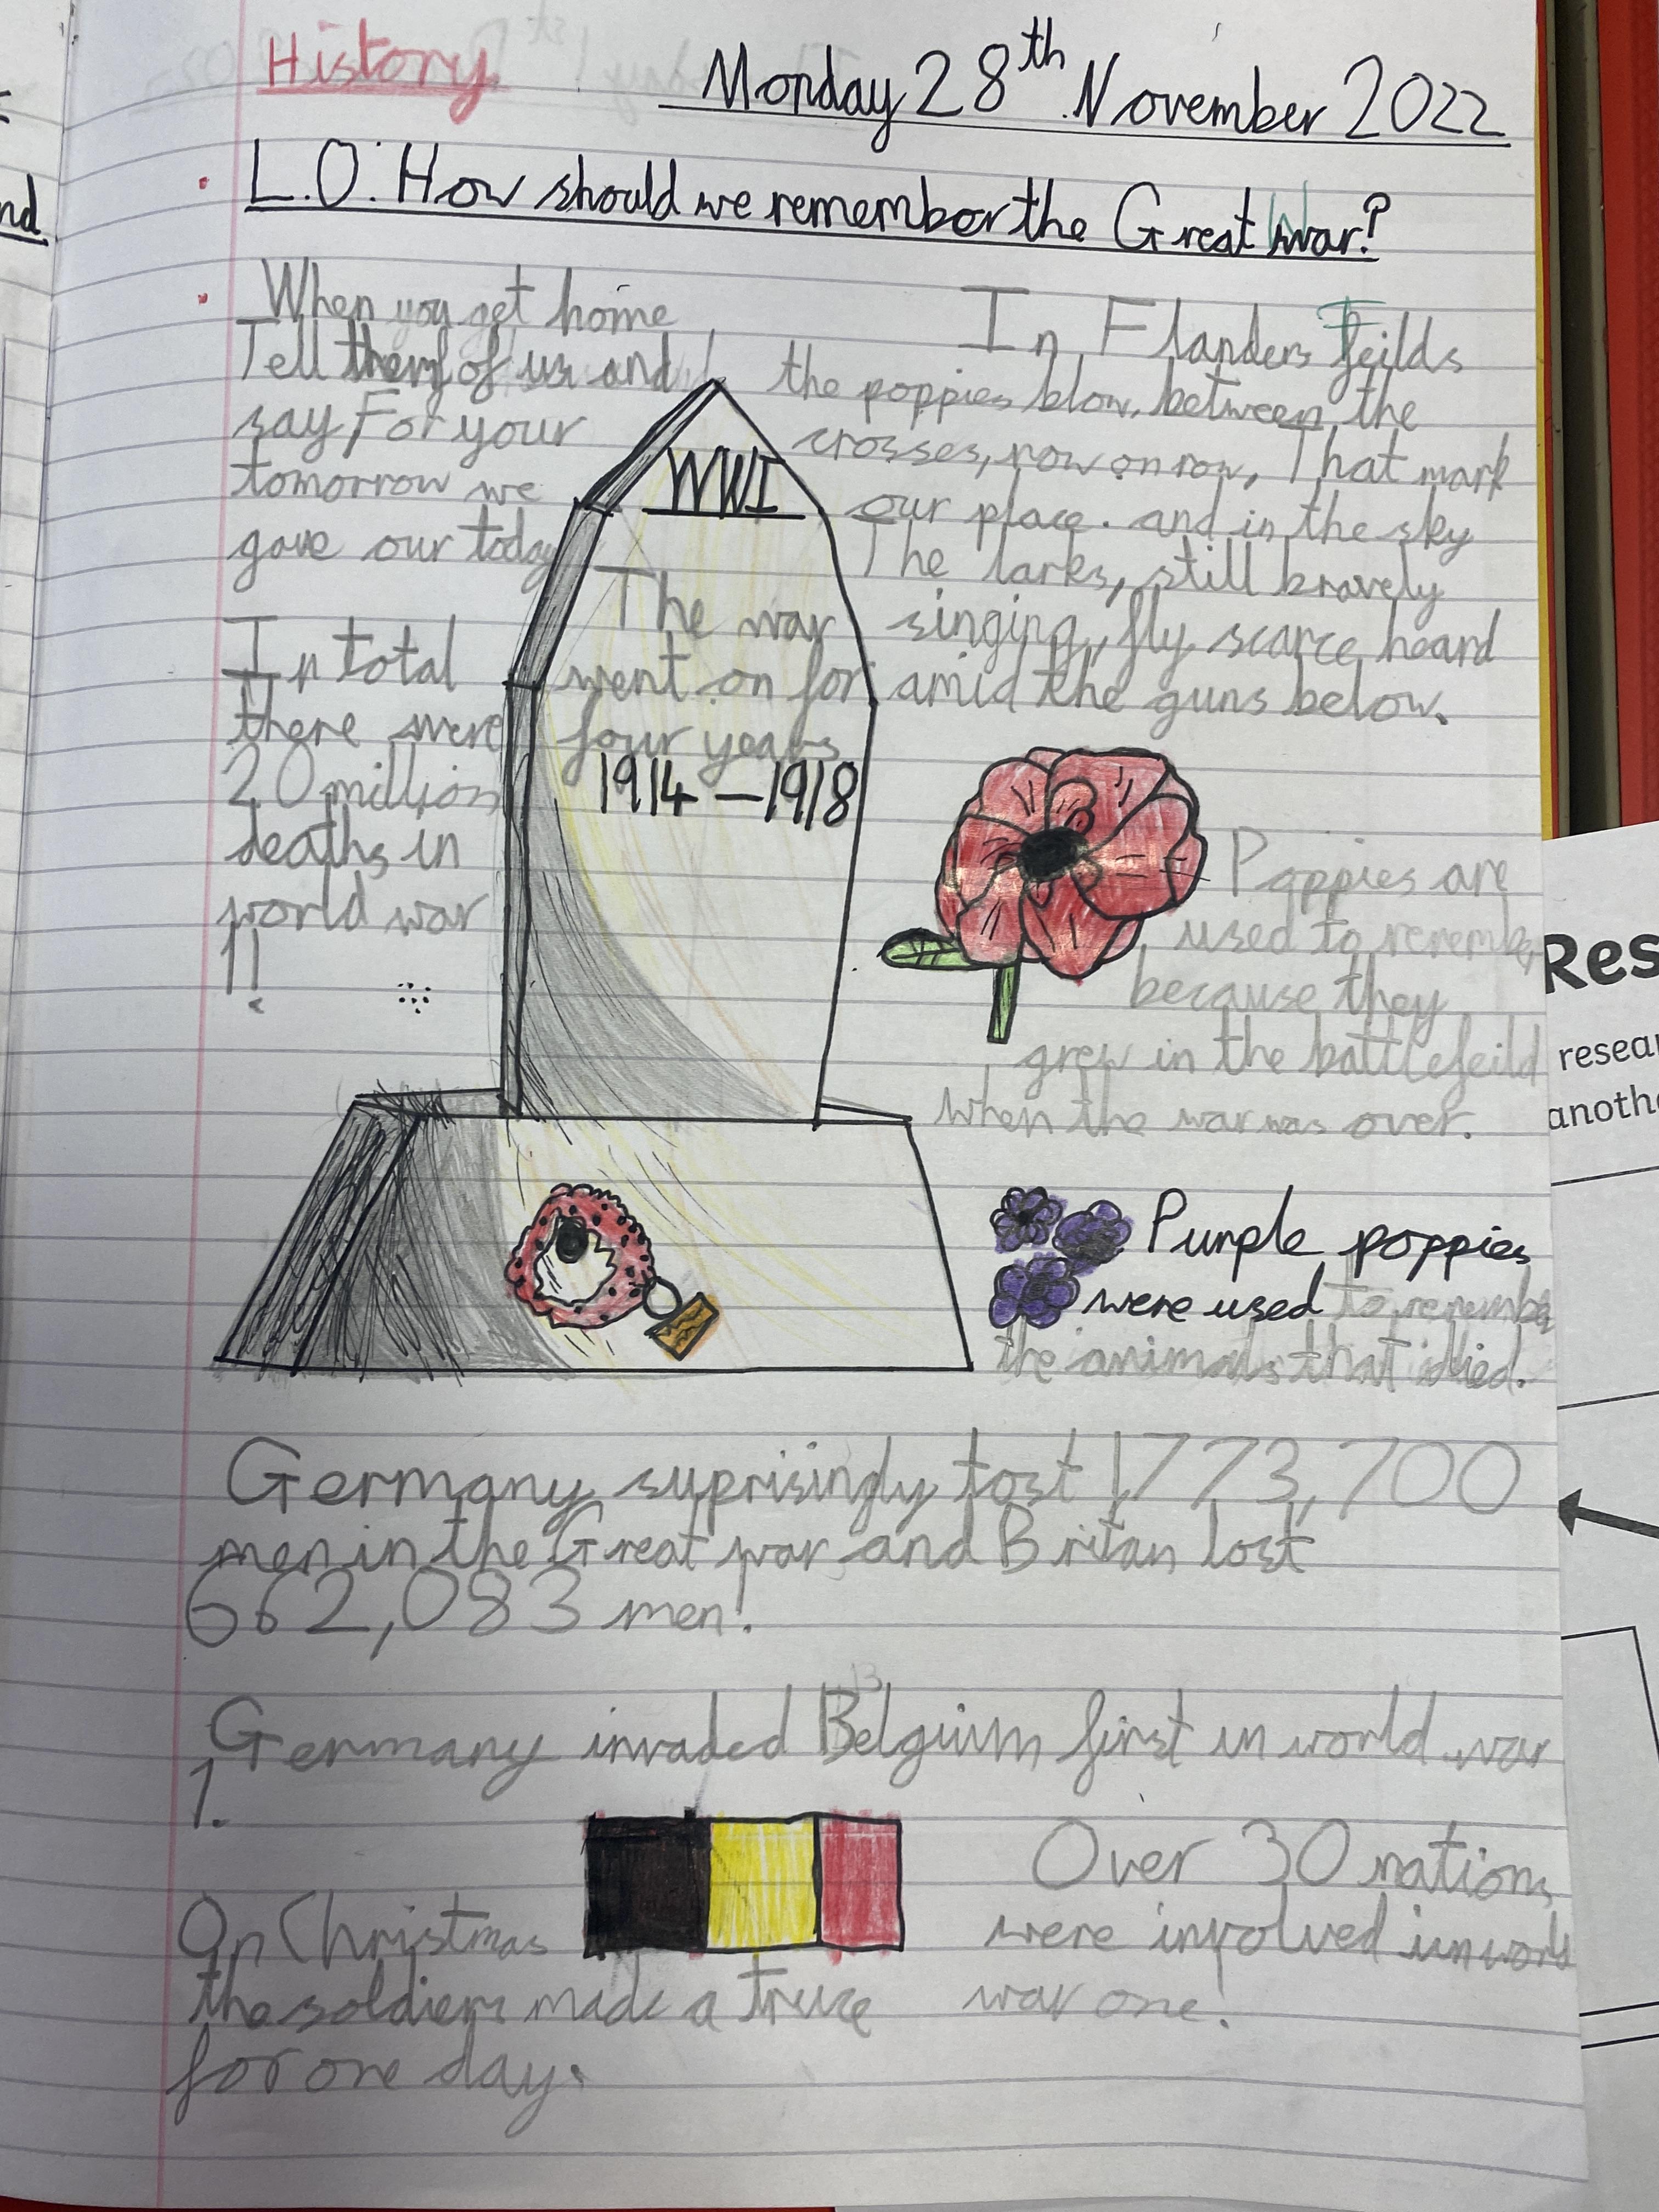 History
Monday 28th November 2022
L.O. How should we remember the Great War?
When you get home
Tell them of us and
say For your
tomorrow we
gave our today
In Flanders Feilds
the poppies blow, between the
crosses, row on row, That mark
our place. and in the sky
The larks, still bravely
singing, fly scarce heard
amid the guns below.
WWI
The war
went on for
four years
1914 - 1918
In total
there were
20 million
deaths in
world war
1!
Poppies are
used to remember
because they
grew in the battlefeild
when the war was over.
Purple poppies
were used to remember
the animals that died.
Germany suprisingly lost 1773,700
men in the Great war and Britan lost
662,083 men!
Germany invaded Belguim first in world war
1.
On Christmas
the soldiers made a truce
for one day.
Over 30 nations
were involved in world
war one!
nd
Res
resear
anoth